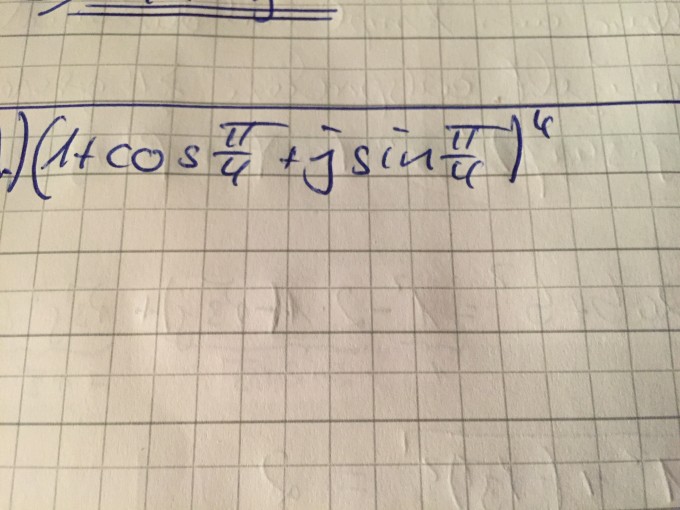 .) (1 + cos π/4 + j sin π/4)^4